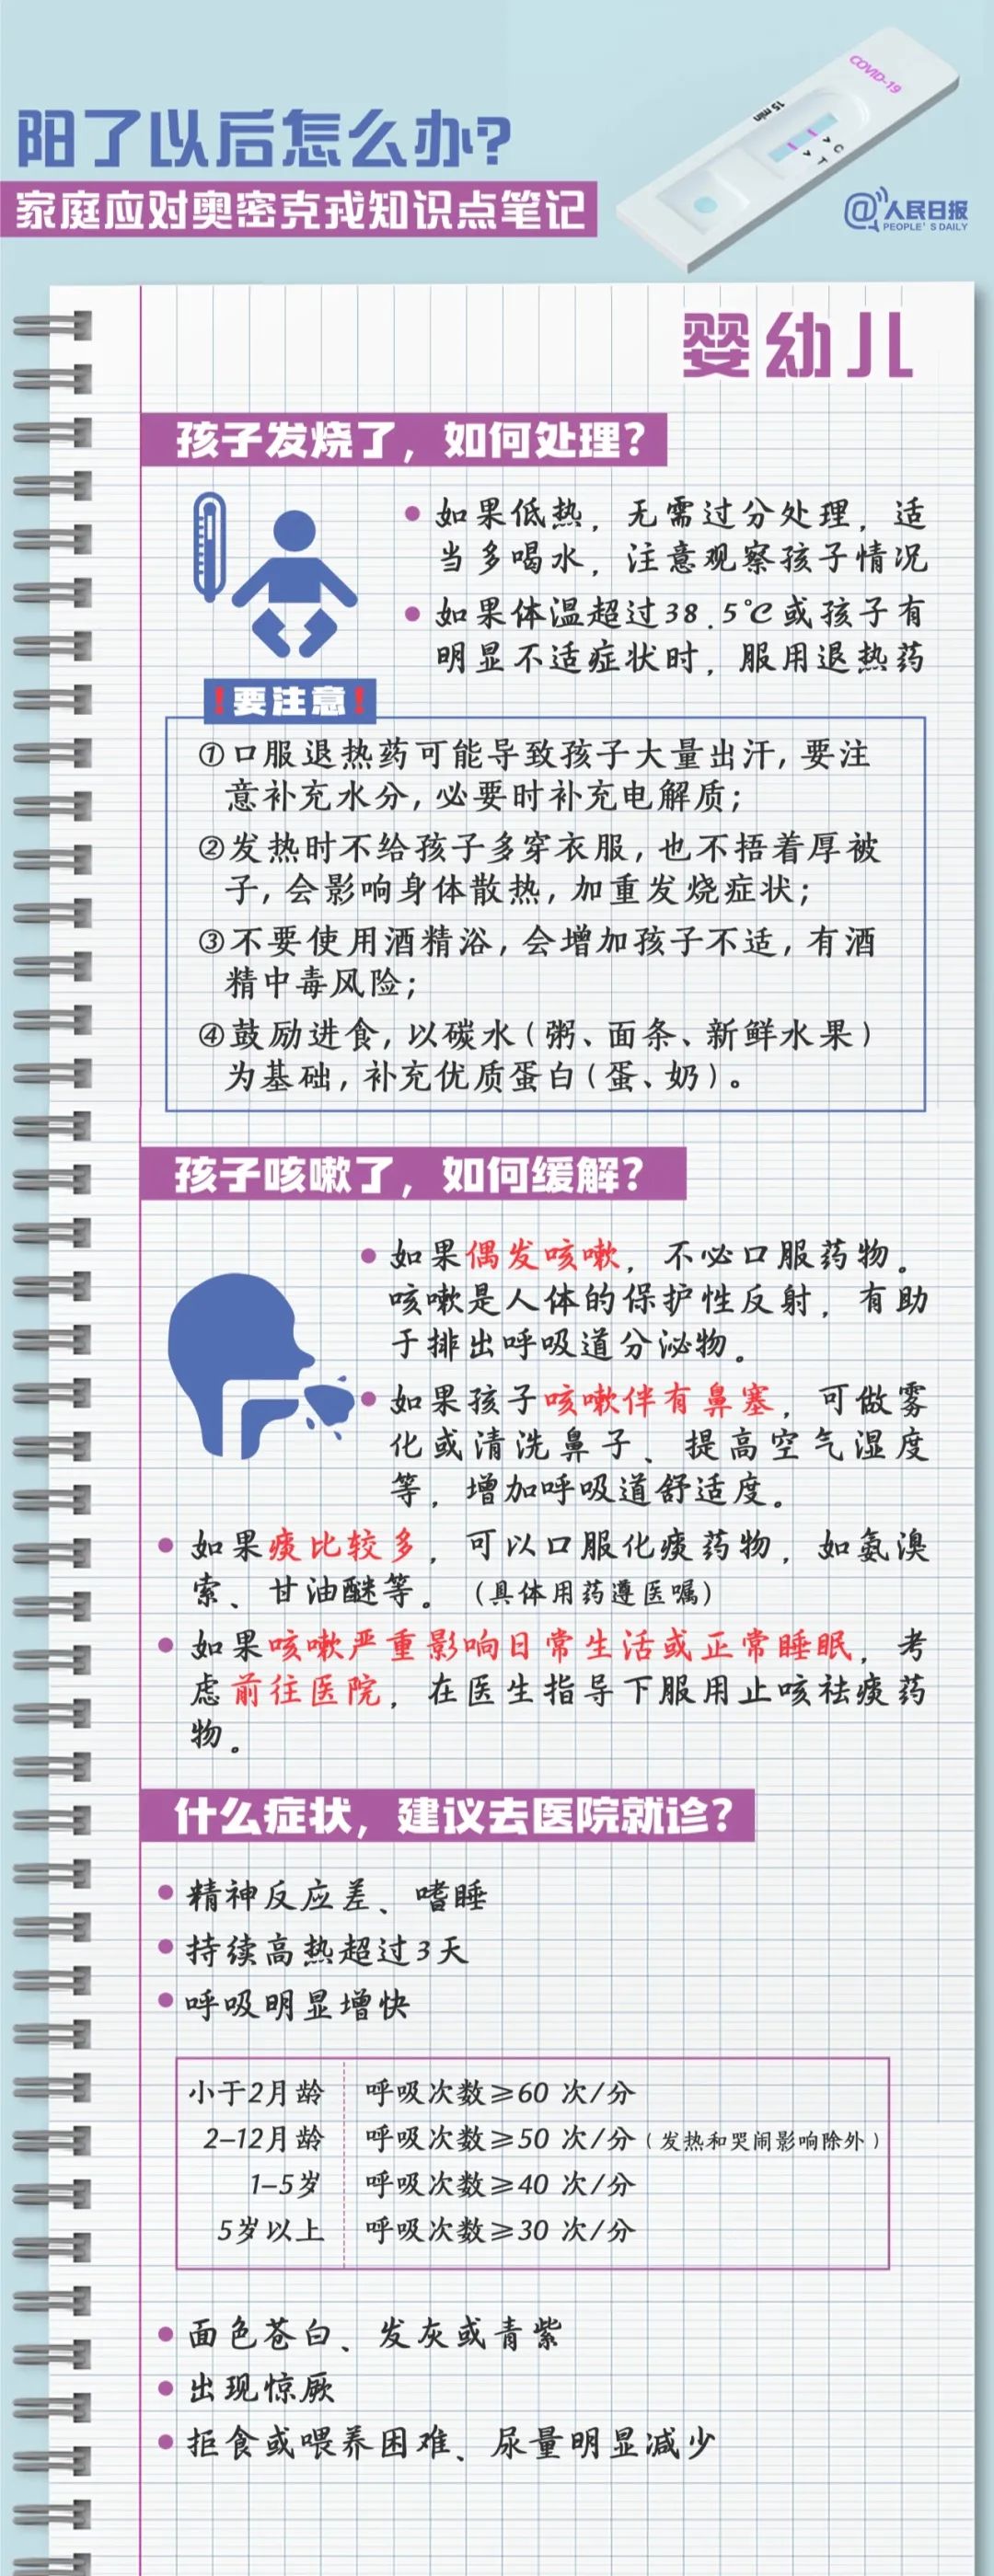 COVID-19
15 min
C
T
阳了以后怎么办?
家庭应对奥密克戎知识点笔记
@人民日报
PEOPLE'S DAILY
婴幼儿
孩子发烧了，如何处理?
如果低热，无需过分处理，适
当多喝水，注意观察孩子情况
如果体温超过38.5℃或孩子有
明显不适症状时，服用退热药
!要注意!
①口服退热药可能导致孩子大量出汗，要注
意补充水分，必要时补充电解质；
②发热时不给孩子多穿衣服，也不捂着厚被
子，会影响身体散热，加重发烧症状；
③不要使用酒精浴，会增加孩子不适，有酒
精中毒风险；
④鼓励进食，以碳水（粥、面条、新鲜水果）
为基础，补充优质蛋白（蛋、奶）。
孩子咳嗽了，如何缓解?
如果偶发咳嗽，不必口服药物。
咳嗽是人体的保护性反射，有助
于排出呼吸道分泌物。
如果孩子咳嗽伴有鼻塞，可做雾
化或清洗鼻子、提高空气湿度
等，增加呼吸道舒适度。
如果痰比较多，可以口服化痰药物，如氨溴
索、甘油醚等。（具体用药遵医嘱）
如果咳嗽严重影响日常生活或正常睡眠，考
虑前往医院，在医生指导下服用止咳祛痰药
物。
什么症状，建议去医院就诊?
精神反应差、嗜睡
持续高热超过3天
呼吸明显增快
小于2月龄 呼吸次数≥60 次/分
2–12月龄 呼吸次数≥50 次/分（发热和哭闹影响除外）
1–5岁 呼吸次数≥40 次/分
5岁以上 呼吸次数≥30 次/分
面色苍白、发灰或青紫
出现惊厥
拒食或喂养困难、尿量明显减少